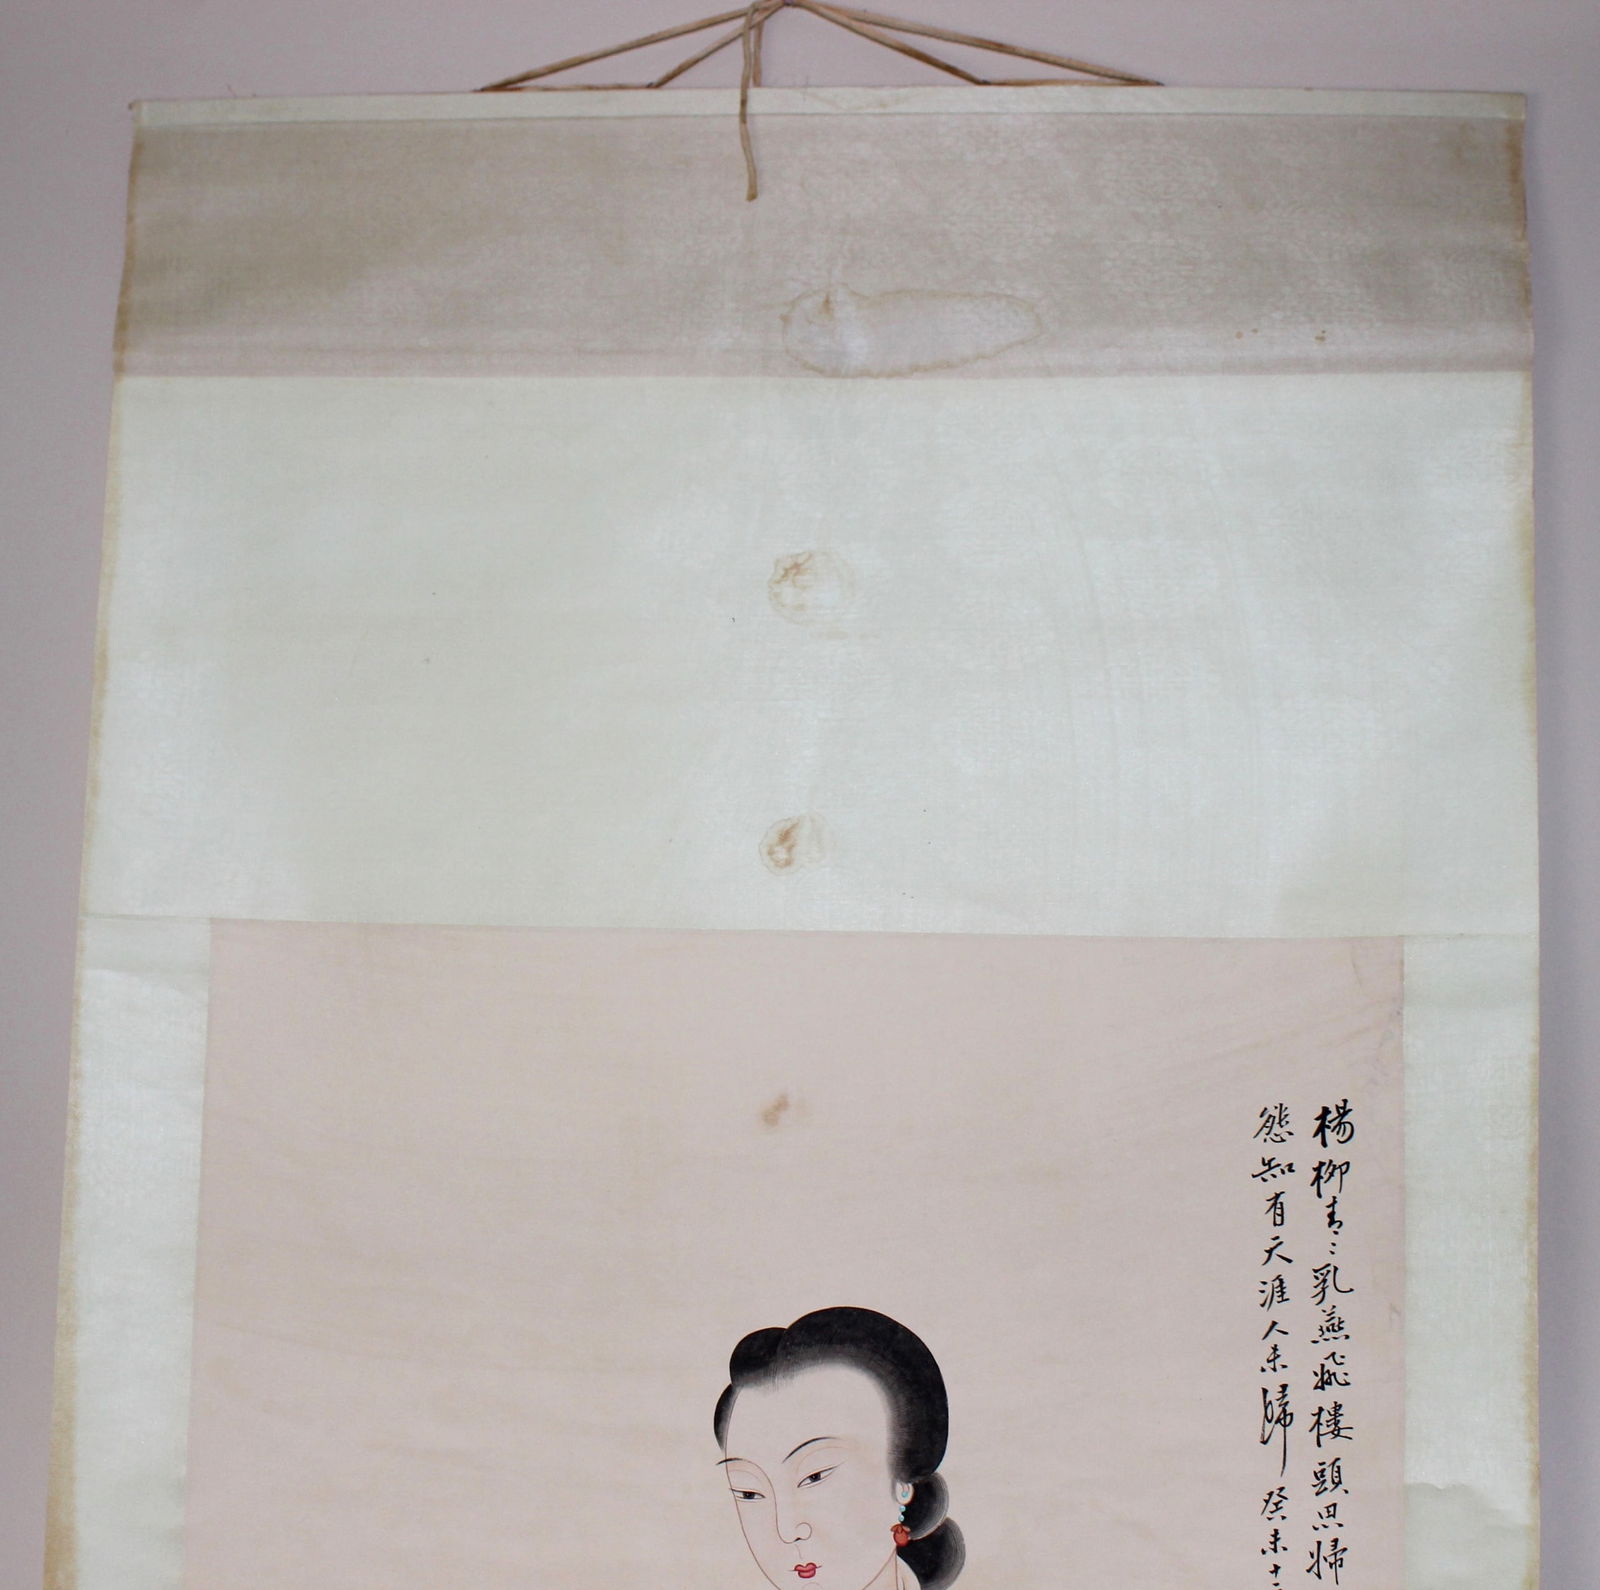 楊柳青〻乳燕飛樓頭思婦
態知有天涯人未歸 癸未十